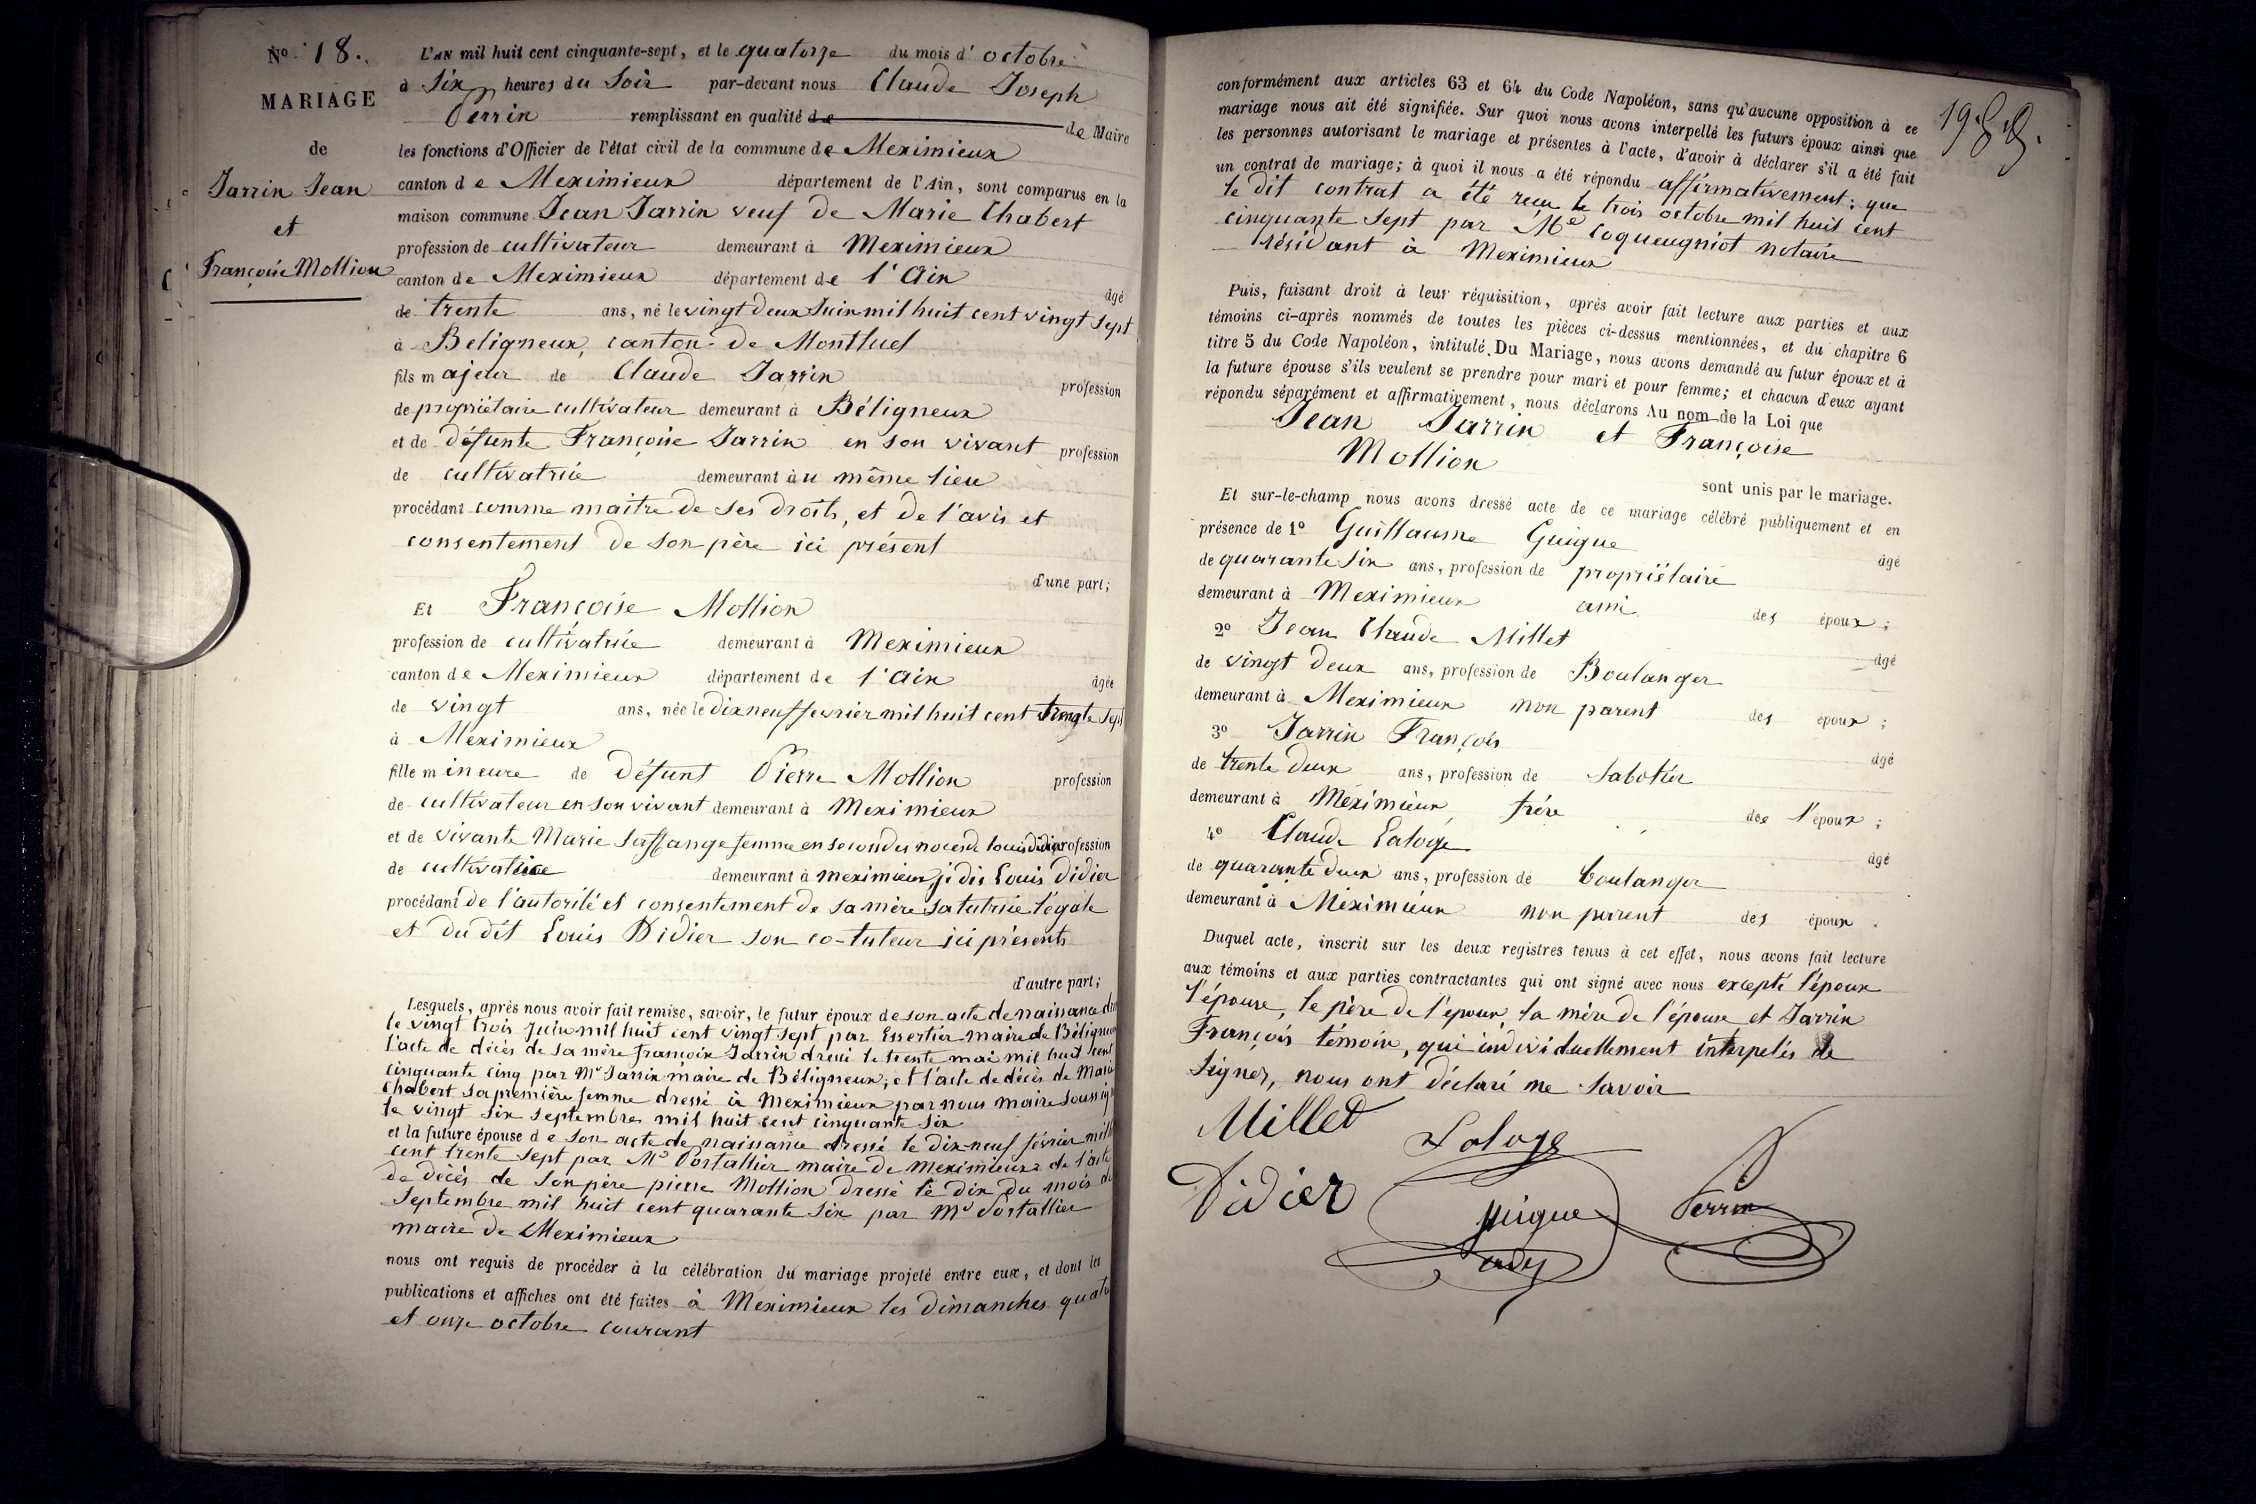 N° 18.
MARIAGE
de
Jarrin Jean
et
Françoise Mollion
L'AN mil huit cent cinquante-sept, et le quatorze du mois d' octobre
à Six heures du Soir par-devant nous Claude Joseph
Perrin remplissant en qualité de de Maire
les fonctions d'Officier de l'état civil de la commune de Meximieux
canton de Meximieux département de l'Ain, sont comparus en la
maison commune Jean Jarrin veuf de Marie Chabert
profession de cultivateur demeurant à Meximieux
canton de Meximieux département de l'Ain âgé
de trente ans, né le vingt deux Juin mil huit cent vingt sept
à Beligneux, canton de Montluel
fils majeur de Claude Jarrin profession
de propriétaire cultivateur demeurant à Béligneux
et de défunte Françoise Jarrin en son vivant profession
de cultivatrice demeurant au même lieu
procédant comme maitre de ses droits, et de l'avis et
consentement de son père ici présent
d'une part;
Et Françoise Mollion
profession de cultivatrice demeurant à Meximieux
canton de Meximieux département de l'Ain âgée
de vingt ans, née le dix neuf fevrier mil huit cent trente sept
à Meximieux
fille mineure de défunt Pierre Mollion profession
de cultivateur en son vivant demeurant à Meximieux
et de vivante Marie femme en secondes noces de Louis Didier profession
de cultivatrice demeurant à meximieux je dis Louis Didier
procédant de l'autorité et consentement de sa mère sa tutrice légale
et du dit Louis Didier son co-tuteur ici présents
d'autre part;
Lesquels, après nous avoir fait remise, savoir, le futur époux de son acte de naissance
le vingt trois Juin mil huit cent vingt sept par Essertier maire de Béligneux
l'acte de décès de sa mère françoise Jarrin dressé le trente mai mil huit cent
cinquante cinq par Mr Jarrin maire de Béligneux; et l'acte de décès de Marie
Chabert sa première femme dressé à Meximieux par nous maire soussigné
le vingt six septembre mil huit cent cinquante six
et la future épouse de son acte de naissance dressé le dix-neuf février mil
cent trente sept par Mr Portallier maire de Meximieux de l'acte
de décès de son père pierre Mollion dressé le dix du mois de
Septembre mil huit cent quarante six par Mr Portallier
maire de Meximieux
nous ont requis de procéder à la célébration du mariage projeté entre eux, et dont les
publications et affiches ont été faites à Meximieux les dimanches quatre
et onze octobre courant
conformément aux articles 63 et 64 du Code Napoléon, sans qu'aucune opposition à ce
mariage nous ait été signifiée. Sur quoi nous avons interpellé les futurs époux ainsi que
les personnes autorisant le mariage et présentes à l'acte, d'avoir à déclarer s'il a été fait
un contrat de mariage; à quoi il nous a été répondu affirmativement; que
le dit contrat a été reçu le trois octobre mil huit cent
cinquante sept par Me Coqueugniot notaire
résidant à Meximieux
Puis, faisant droit à leur réquisition, après avoir fait lecture aux parties et aux
témoins ci-après nommés de toutes les pièces ci-dessus mentionnées, et du chapitre 6
titre 5 du Code Napoléon, intitulé Du Mariage, nous avons demandé au futur époux et à
la future épouse s'ils veulent se prendre pour mari et pour femme; et chacun d'eux ayant
répondu séparément et affirmativement, nous déclarons Au nom de la Loi que
Jean Jarrin et Françoise
Mollion
sont unis par le mariage.
Et sur-le-champ nous avons dressé acte de ce mariage célébré publiquement et en
présence de 1° Guillaume Guigue âgé
de quarante six ans, profession de propriétaire
demeurant à Meximieux ami des époux;
2° Jean Claude Millet âgé
de vingt deux ans, profession de Boulanger
demeurant à Meximieux non parent des époux;
3° Jarrin François âgé
de trente deux ans, profession de Sabotier
demeurant à Meximieux frère de l'époux;
4° Claude Laloge âgé
de quarante deux ans, profession de boulanger
demeurant à Meximieux non parent des époux.
Duquel acte, inscrit sur les deux registres tenus à cet effet, nous avons fait lecture
aux témoins et aux parties contractantes qui ont signé avec nous excepté l'époux
l'épouse, le père de l'époux, la mère de l'épouse et Jarrin
François témoin, qui individuellement interpelés de
Signer, nous ont déclaré ne Savoir
Millet
Laloge
Didier
guigue
Perrin